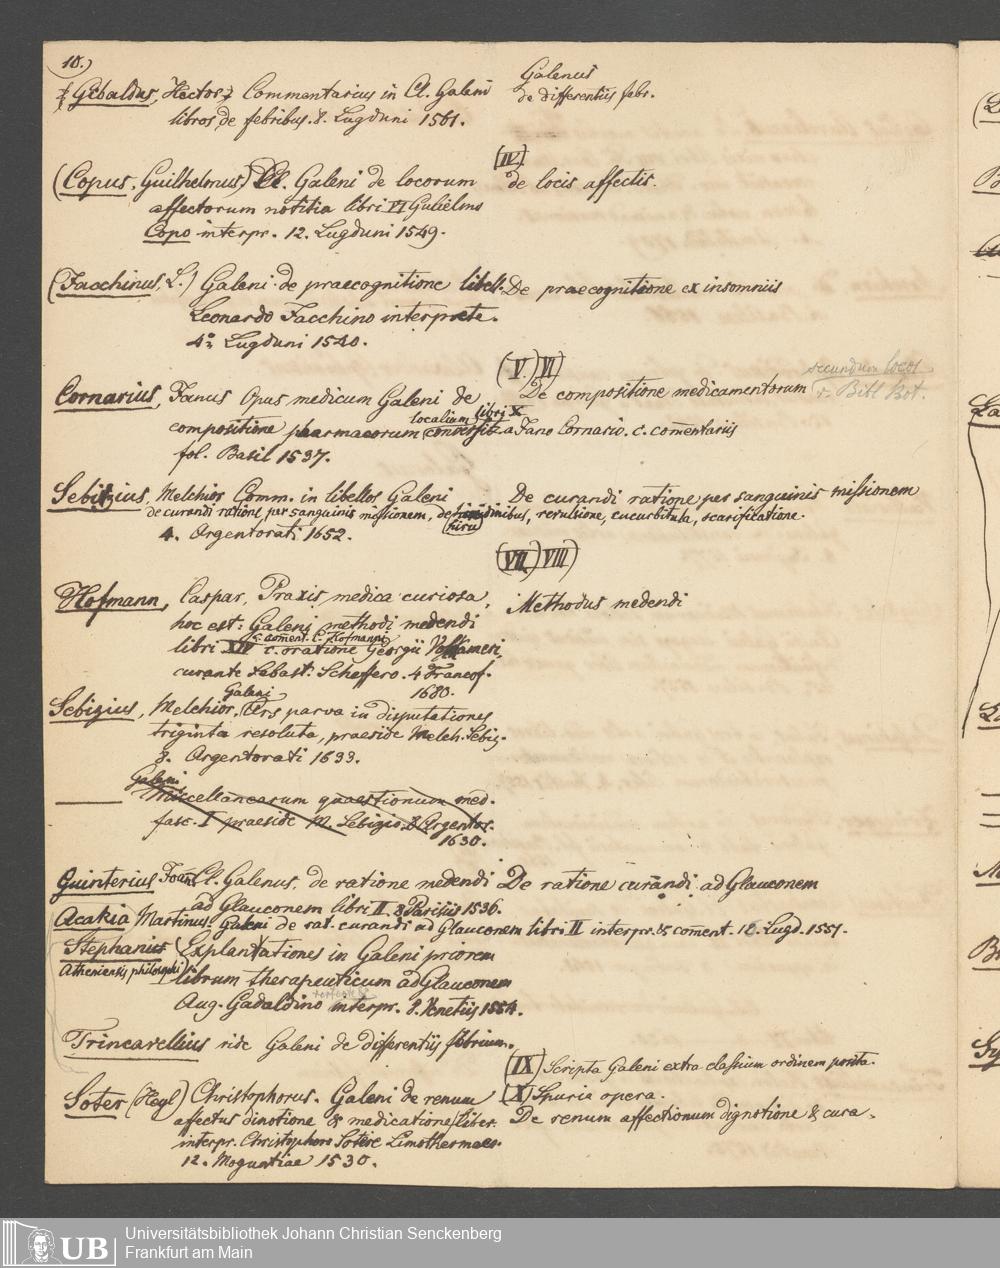 10.)
Galenus
Gebaldus, Hector, Commentarius in Cl. Galeni
de differentiis febr.
libros de febribus. 8. Lugduni 1561.
(IV)
(Copus, Guilhelmus) Cl. Galeni de locorum
de locis affectis.
affectorum notitia libri VI Gulielmo
Copo interpr. 12. Lugduni 1549.
(Facchinus, L.) Galeni de praecognitione libell.
De praecognitione ex insomniis
Leonardo Facchino interprete.
4° Lugduni 1540.
(V.) VI)
secundum locos
Cornarius, Janus Opus medicum Galeni de
De compositione medicamentorum
v. Bibl Bot.
compositione pharmacorum localium libri X
a Jano Cornario. c. comentariis
fol. Basil 1537.
Sebizius, Melchior Comm. in libellos Galeni
De curandi ratione per sanguinis missionem
de curandi ratione per sanguinis missionem, de hirudinibus, revulsione, cucurbitula, scarificatione.
4. Argentorati 1652.
(VII.) VIII)
Hofmann, Caspar, Praxis medica curiosa,
Methodus medendi
hoc est: Galeni methodi medendi
c. coment. C. Hofmanni
libri XIV c. oratione Georgii Volkameri,
curante Sebast. Scheffero. 4 Francof.
1680.
Galeni
Sebizius, Melchior, Ars parva in disputationes
triginta resoluta, praeside Melch. Sebiz.
8. Argentorati 1633.
Galeni
Miscellanearum quaestionum med.
fasc. I praeside M. Sebizio. 8 Argentor.
1630.
Guinterius Joan. Cl. Galenus, de ratione medendi
De ratione curandi ad Glauconem
ad Glauconem libri II. 8 Parisiis 1536.
Acakia Martinus. Galeni de rat. curandi ad Glauconem libri II interpr. & coment. 16. Lugd. 1551.
Stephanus Explanationes in Galeni priorem
Atheniensis philosophi
librum therapeuticum ad Glauconem
Aug. Gadaldino interpr. 8. Venetiis 1554.
Trincavellius vide Galeni de differentiis febrium.
(IX) Scripta Galeni extra classium ordinem posita.
(X) Spuria opera.
Soter (Heyl) Christophorus. Galeni de renum
De renum affectionum dignotione & cura.
affectus dinotione & medicatione liber.
interpr. Christophoro Sotere
12. Moguntiae 1530.
Universitätsbibliothek Johann Christian Senckenberg
Frankfurt am Main
UB